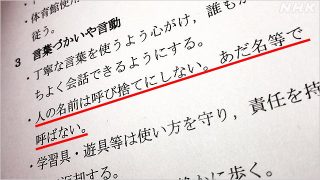 NHK
体育館使用
従う。
3 言葉づかいや言動
・丁寧な言葉を使うよう心がけ，誰もが
ちよく会話できるようにする。
・人の名前は呼び捨てにしない。あだ名等で
呼ばない。
・学習具・遊具等は使い方を守り，責任を持
かに歩く。